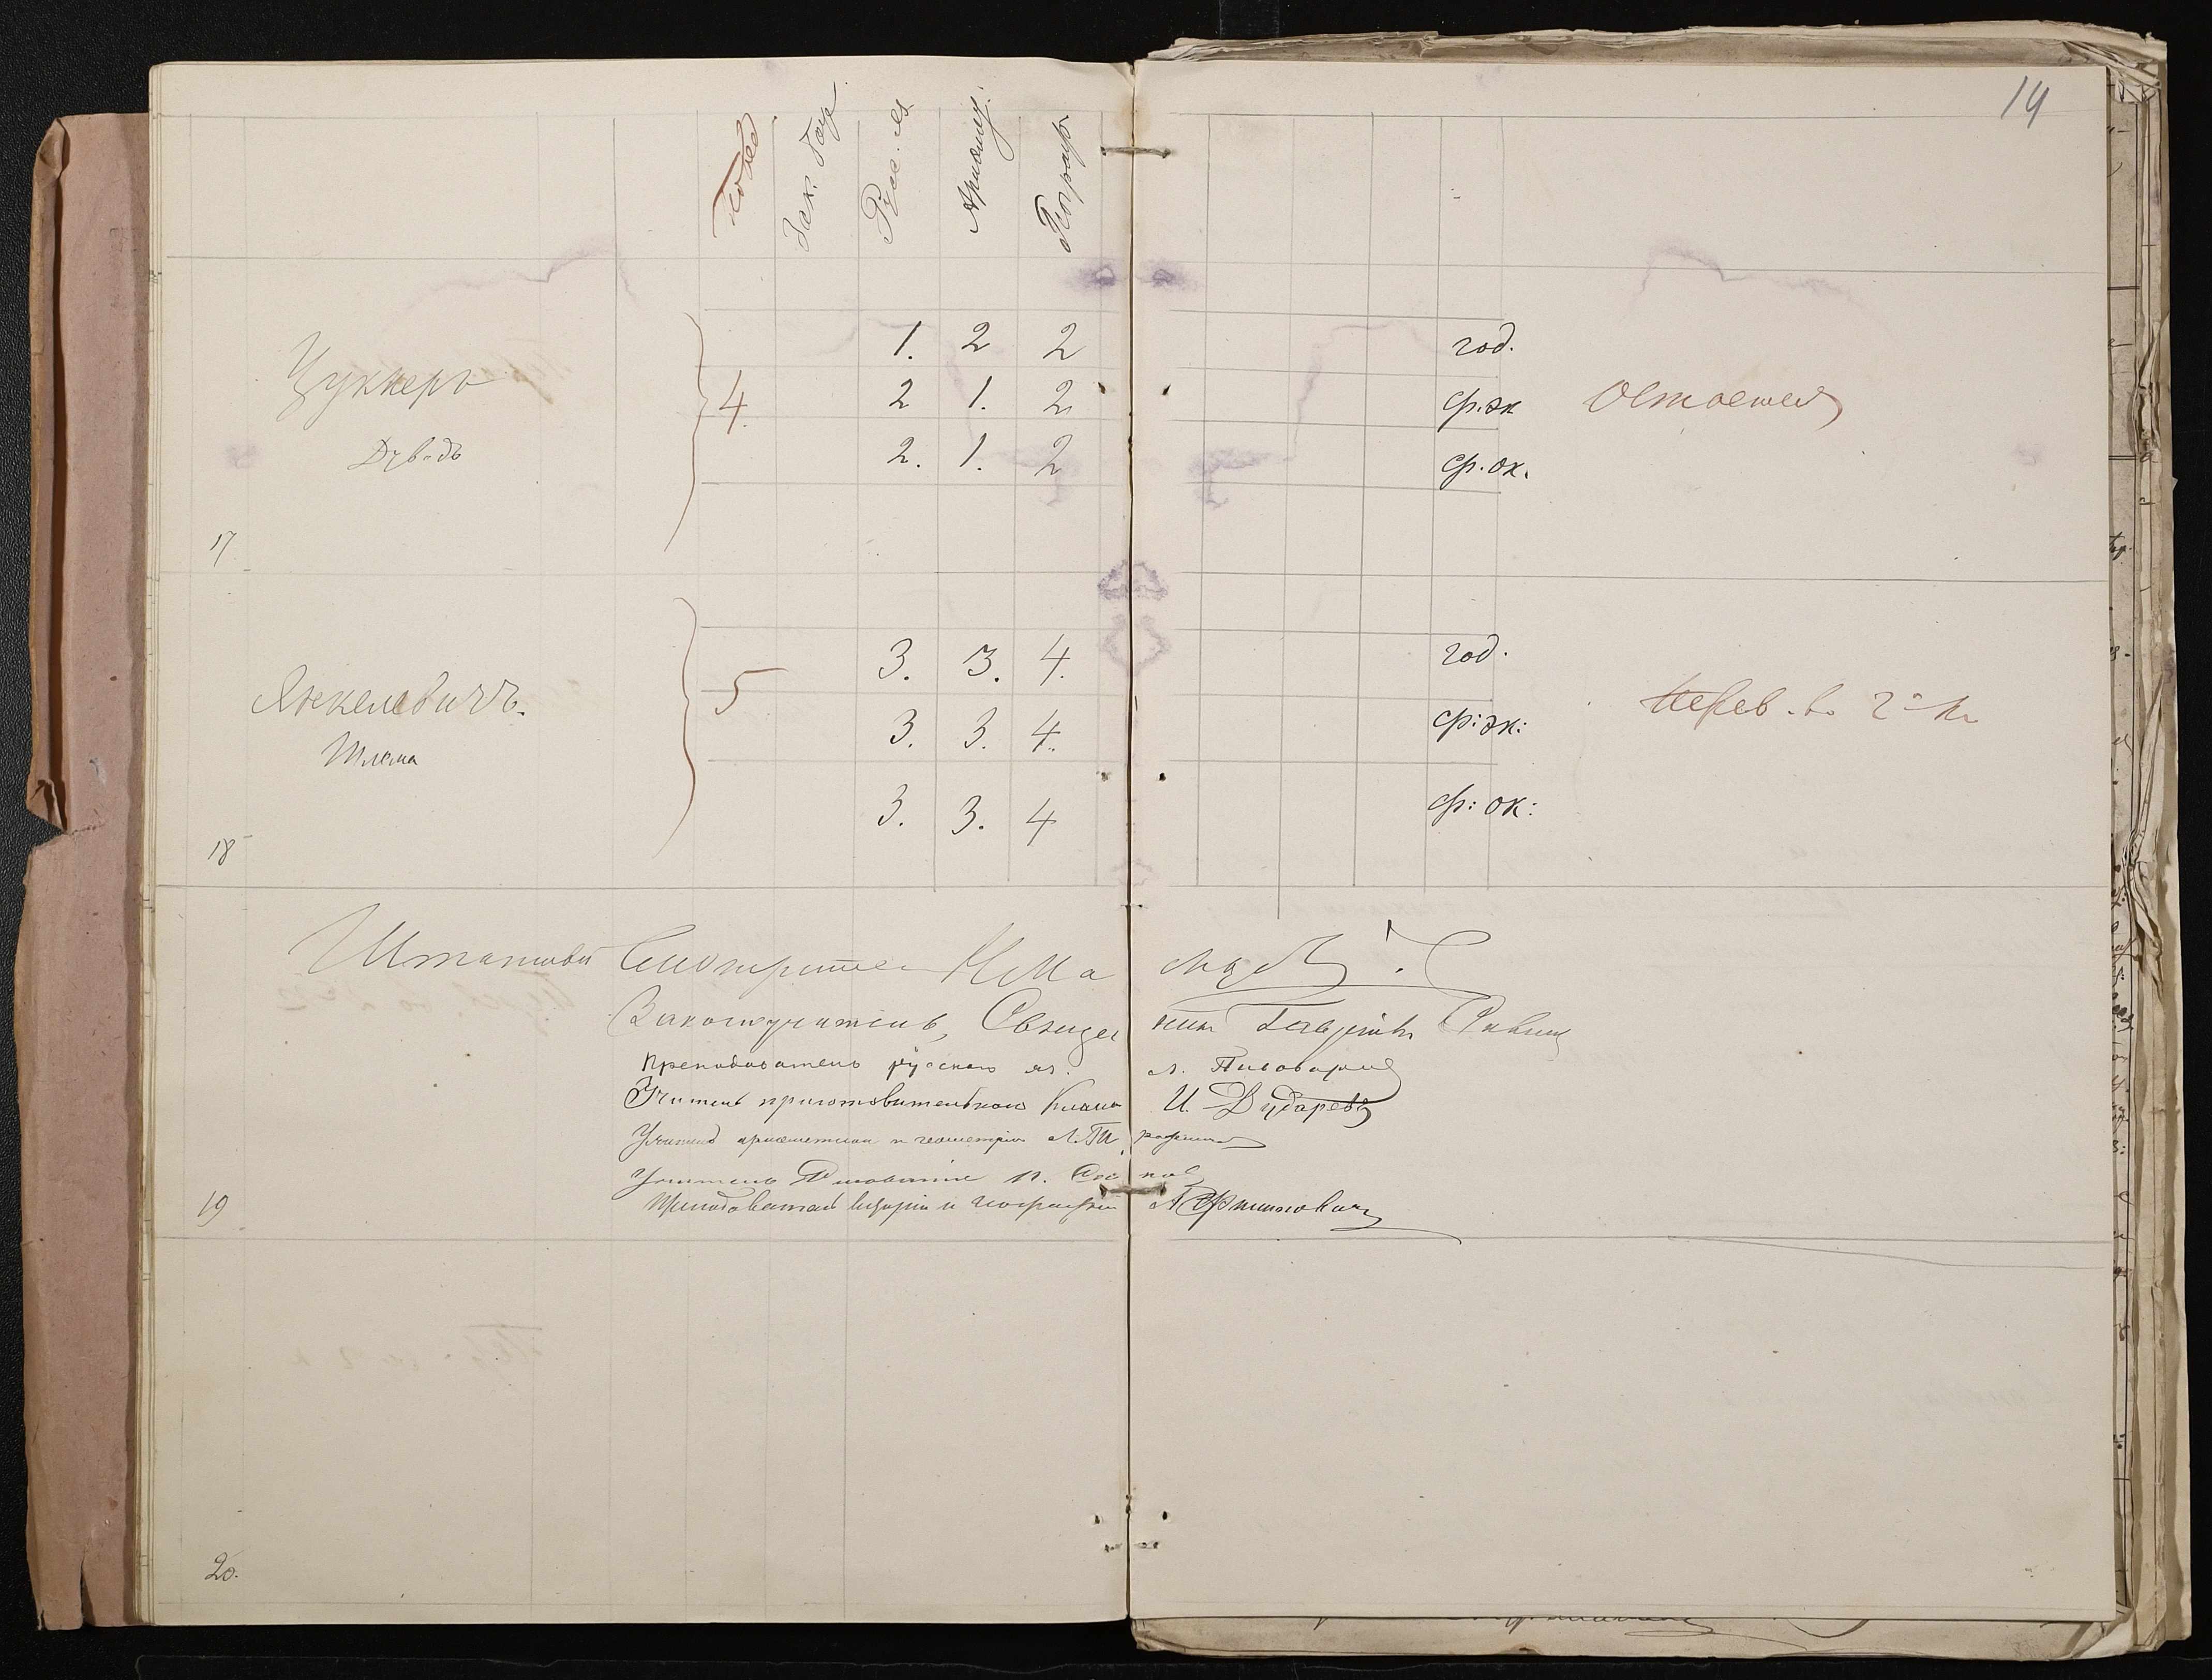 14
Повед
Зак. Бож.
Русс. яз.
Арифмет.
Географ
1. 2 2 год.
Цуккеръ 4. 2 1. 2 ср. эк Остается
Дув-дъ 2. 1. 2 ср. ок.
17
3. 3. 4. год.
Янкелевичъ. 5 3. 3. 4. ср: эк: Перев. во 2й кл
Шлема 3. 3. 4 ср: ок:
18
Штатный Смотритель
Законоучитель, Священникъ Гавріилъ
Преподаватель русскаго яз. А. Пивоваровъ
Учитель приготовительнаго класса И. Дударевъ
Учитель ариѳметики и геометріи
Учитель
Преподаватель исторіи и географіи
19
20.